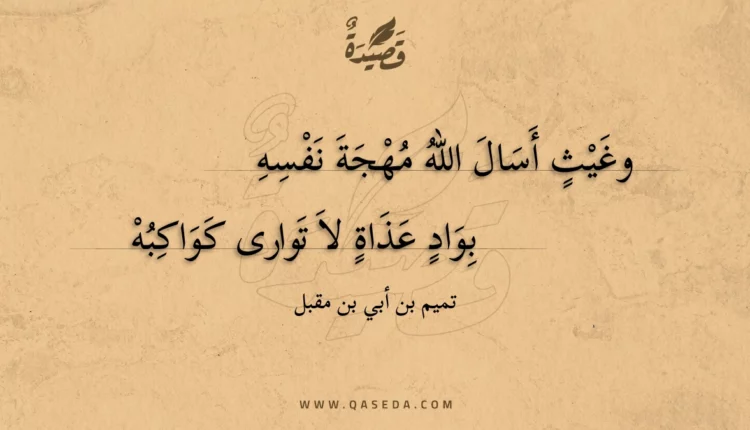 قَصِيْدَةٌ
وغَيْثٍ أَسَالَ اللهُ مُهْجَةَ نَفْسِهِ
بِوَادٍ عَذَاةٍ لاَ تَوارى كَوَاكِبُهْ
تميم بن أبي بن مقبل
WWW.QASEDA.COM